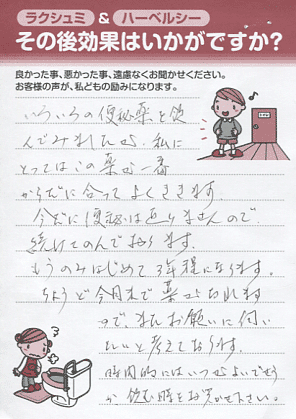 ラクシュミ & ハーベルシー
その後効果はいかがですか?
良かった事、悪かった事、遠慮なくお聞かせください。
お客様の声が、私どもの励みになります。
いろいろの便秘薬を飲
んでみましたが、私に
とってはこの薬が一番
からだに合ってよくききます。
今だに便秘は直りませんので
続けてのんでおります。
もうのみはじめて3年程になります。
ちょうど今月末で薬がきれます
ので、またお願いに伺い
たいと考えております。
時間的にはいつがよいでせう
か 飲む時をお聞かせ下さい。